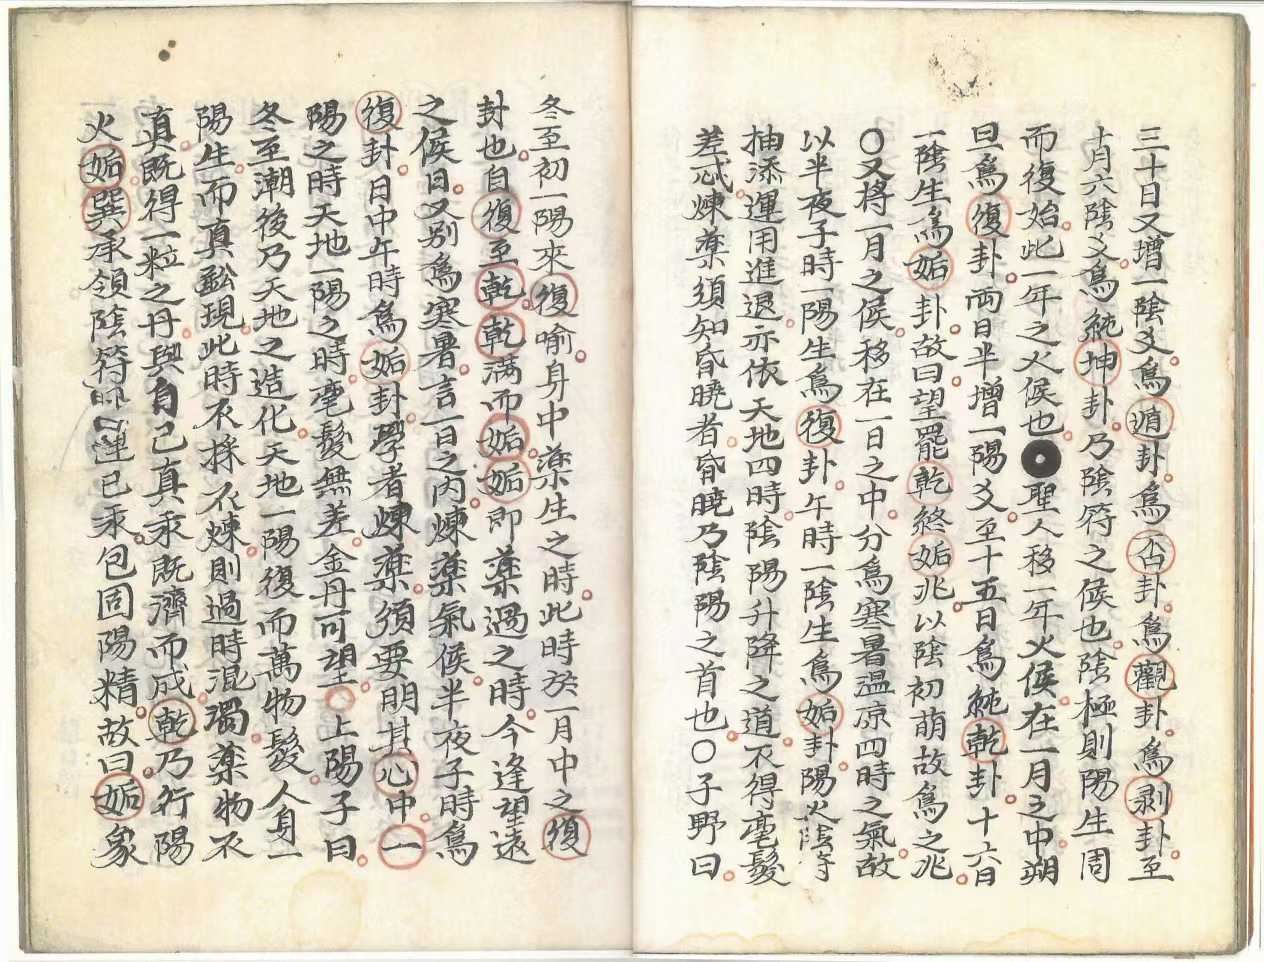 三十日又增一陰爻爲遁卦爲否卦爲觀卦爲剥卦至
十月六陰爻爲純坤卦乃陰符之候也陰極則陽生周
而復始此一年之火候也聖人移一年火候在一月之中朔
旦爲復卦兩日半增一陽爻至十五日爲純乾卦十六日
一陰生爲姤卦故曰望罷乾終姤兆以陰初萌故爲之兆
〇又將一月之候移在一日之中分爲寒暑温凉四時之氣故
以半夜子時一陽生爲復卦午時一陰生爲姤卦陽火陰符
抽添運用進退亦依天地四時陰陽升降之道不得毫髮
差忒煉藥須知昏曉者昏曉乃陰陽之首也〇子野曰
冬至初一陽來復喻身中藥生之時此時於一月中之復
卦也自復至乾乾滿而姤姤即藥過之時今逢望遠
之候日又別爲寒暑言一日之內煉藥氣候半夜子時爲
復卦日中午時爲姤卦學者煉藥須要明其心中一
陽之時天地一陽之時毫髮無差金丹可望〇上陽子曰
冬至潮後乃天地之造化天地一陽復而萬物發人身一
陽生而真鉛現此時不採不煉則過時混濁藥物不
真既得一粒之丹與自己真汞既濟而成乾乃行陽
火姤巽承領陰符即運已汞包固陽精故曰姤象